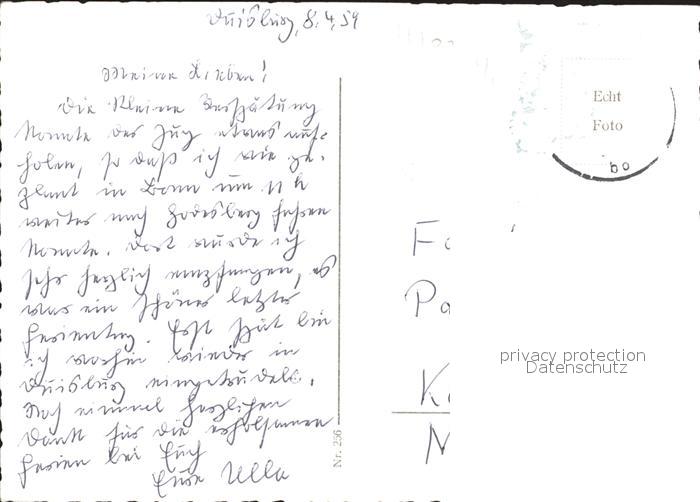 Duisburg, 8.4.59
Meine Lieben!
Die kleine Verspätung
konnte der Zug etwas auf-
holen, so daß ich wie ge-
plant in Bonn um 11 h
weiter nach Godesberg fahren
konnte. Dort wurde ich
sehr herzlich empfangen, es
war ein schöner letzter
Ferientag. Erst spät bin
ich wieder in
Duisburg eingetrudelt.
Noch einmal herzlichen
Dank für die erholsamen
Ferien bei Euch
Eure Ulla
Nr. 256
Echt
Foto
bo
Fa
Pa
K
N
privacy protection
Datenschutz